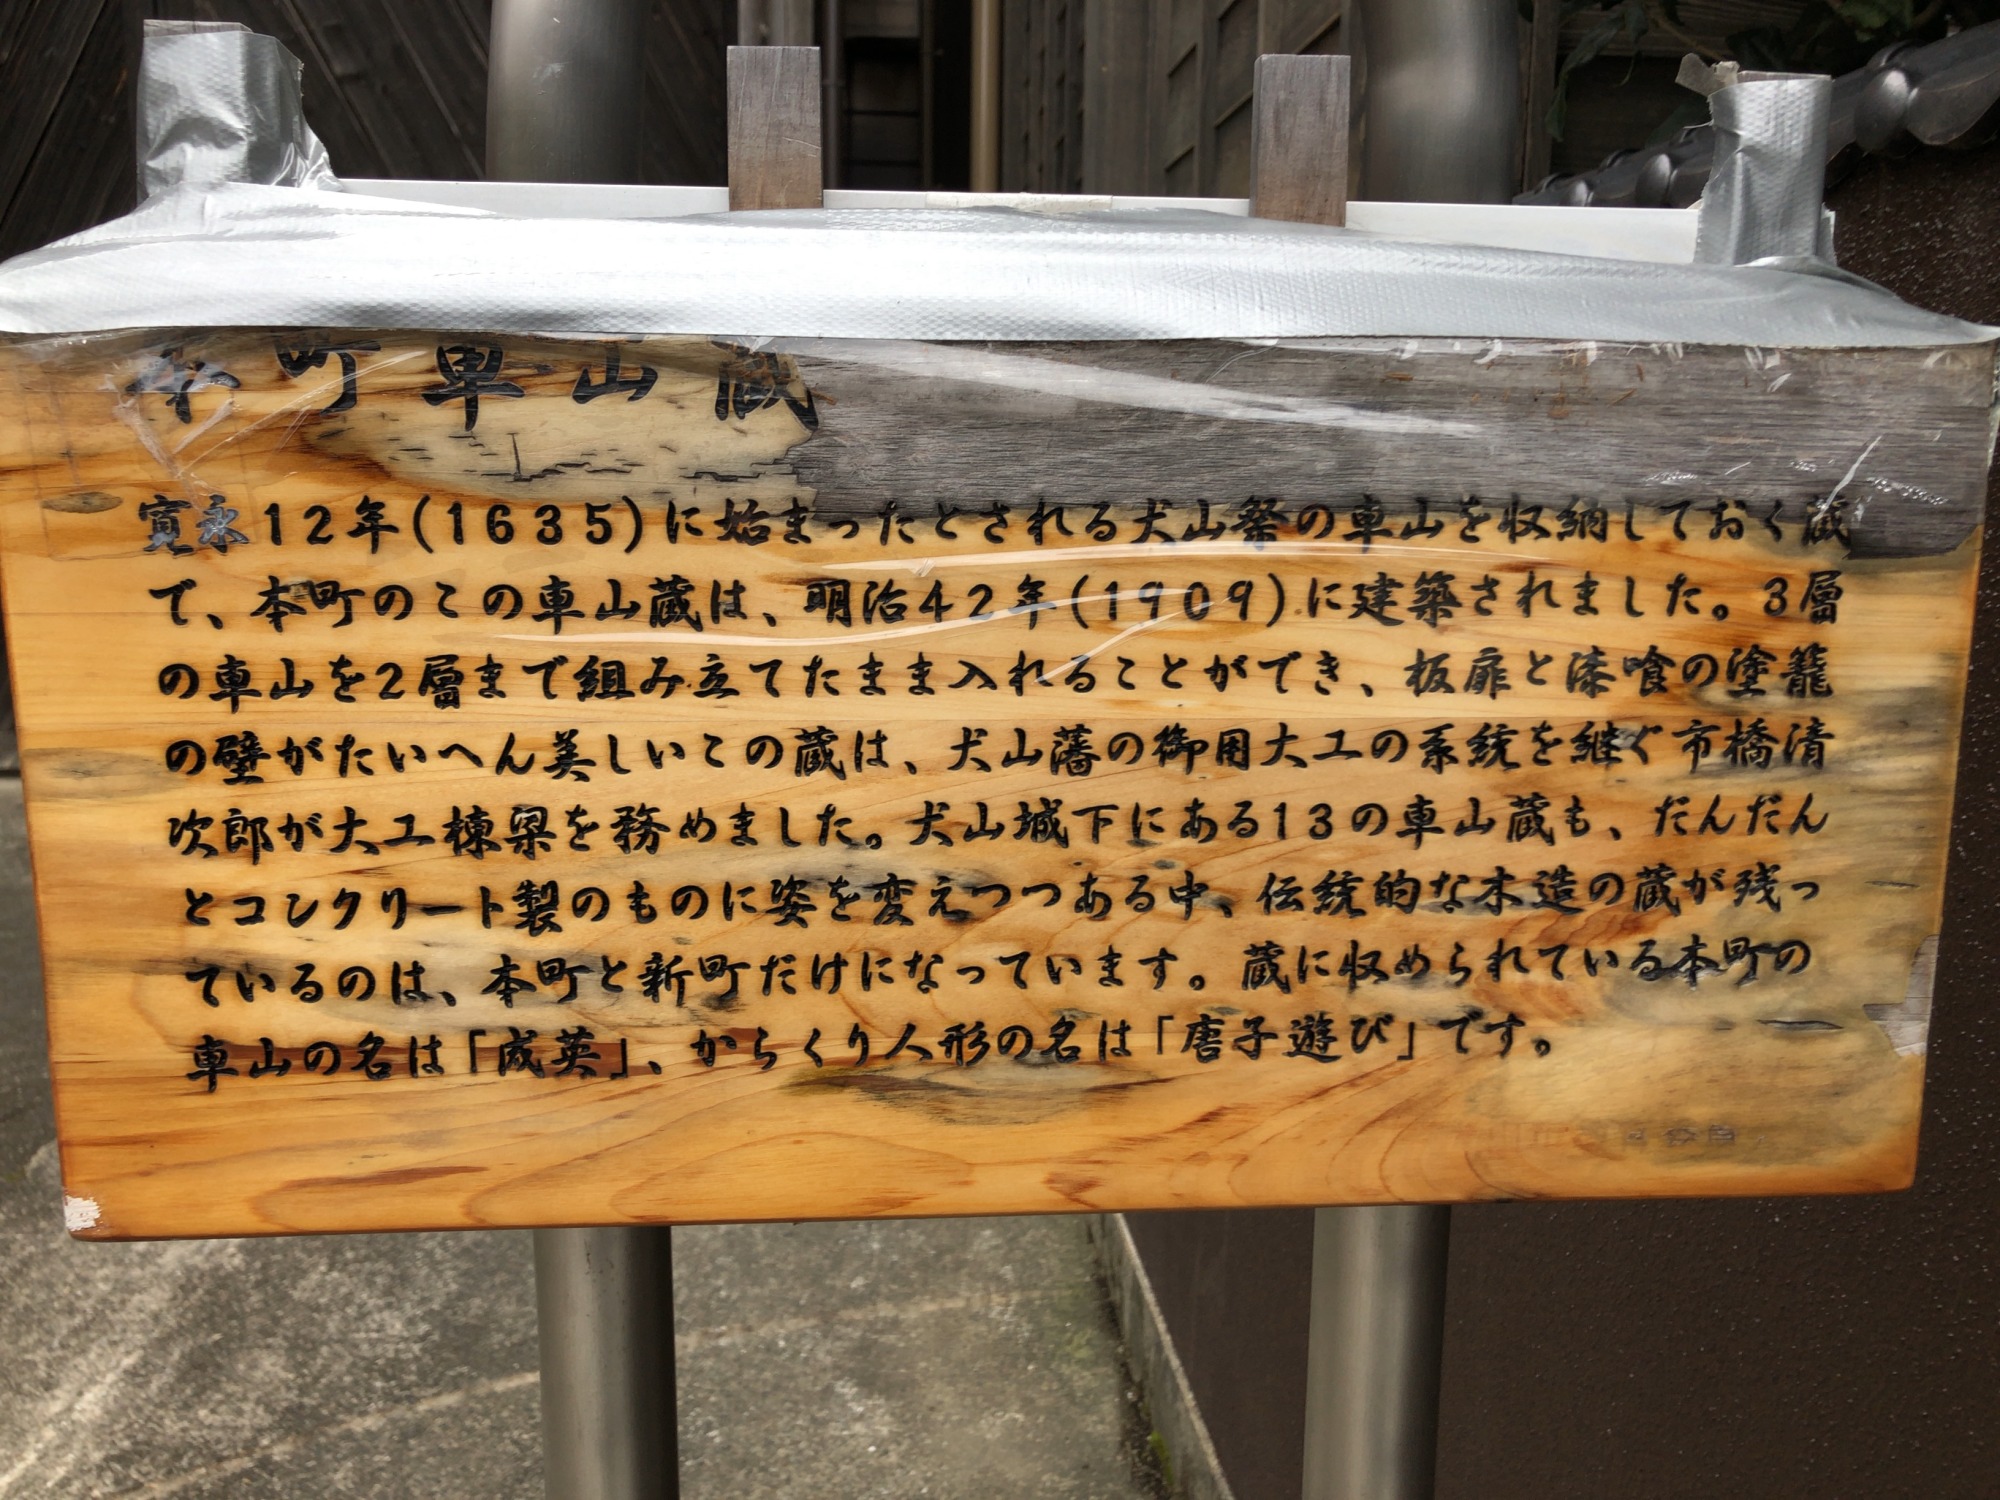 本町車山蔵
寛永12年(1635)に始まったとされる犬山祭の車山を収納しておく蔵
で、本町のこの車山蔵は、明治42年(1909)に建築されました。3層
の車山を2層まで組み立てたまま入れることができ、板扉と漆喰の塗籠
の壁がたいへん美しいこの蔵は、犬山藩の御用大工の系統を継ぐ市橋清
次郎が大工棟梁を務めました。犬山城下にある13の車山蔵も、だんだん
とコンクリート製のものに姿を変えつつある中、伝統的な木造の蔵が残っ
ているのは、本町と新町だけになっています。蔵に収められている本町の
車山の名は「咸英」、からくり人形の名は「唐子遊び」です。